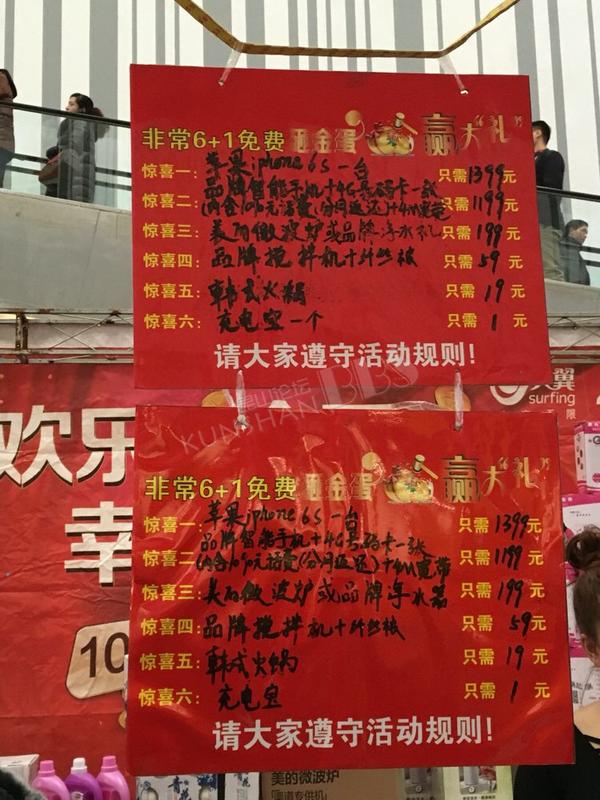 非常6+1免费 砸金蛋 赢大“礼”
惊喜一: 苹果iphone 6S一台 只需1399元
惊喜二: 品牌智能手机+4G号码卡一张 (内含1070元话费(分月返还)+4M宽带 只需1199元
惊喜三: 美的微波炉或品牌净水机 只需199元
惊喜四: 品牌搅拌机+纤丝被 只需59元
惊喜五: 韩式火锅 只需19元
惊喜六: 充电宝一个 只需1元
请大家遵守活动规则!
昆山论坛
KUNSHAN BBS
翼
surfing
限
欢乐
幸
10
非常6+1免费 砸金蛋 赢大“礼”
惊喜一: 苹果iphone 6S一台 只需1399元
惊喜二: 品牌智能手机+4G号码卡一张 (内含1070元话费(分月返还)+4M宽带 只需1199元
惊喜三: 美的微波炉或品牌净水器 只需199元
惊喜四: 品牌搅拌机+纤丝被 只需59元
惊喜五: 韩式火锅 只需19元
惊喜六: 充电宝 只需1元
请大家遵守活动规则!
美的微波炉
渠道专供机